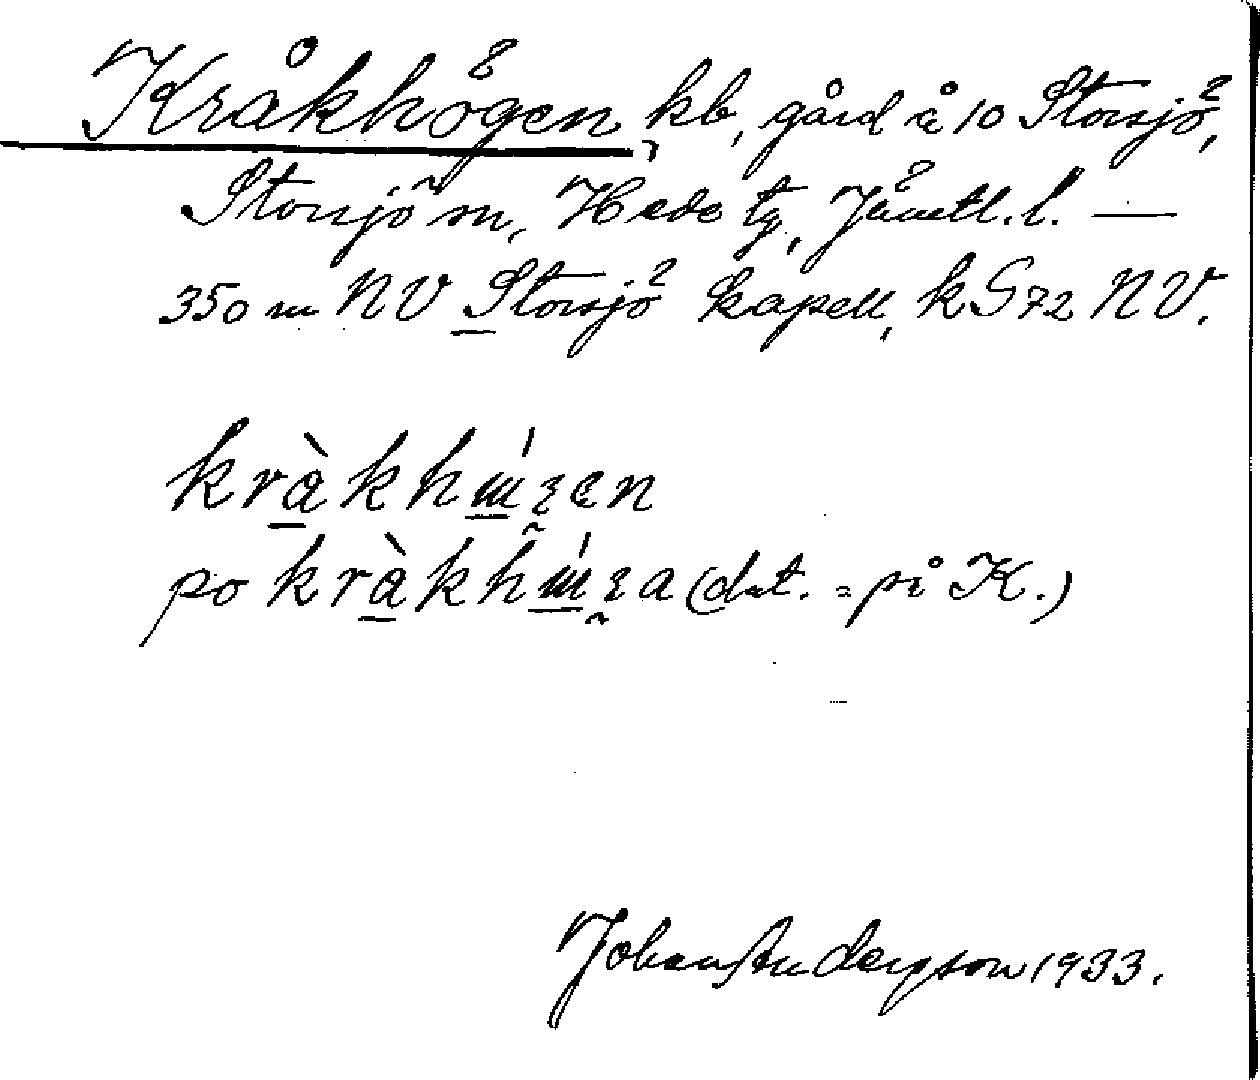 Kråkhögen, kb, gård å 10 Storsjö,
Storsjö sn, Hede tg, Jämtl. l. —
350 m NV Storsjö kapell, kS72 NV.
kràkhɯ́ʒen
po kràkhɯ́ʒa (dat. = på K.)
Johan Anderpson 1933.